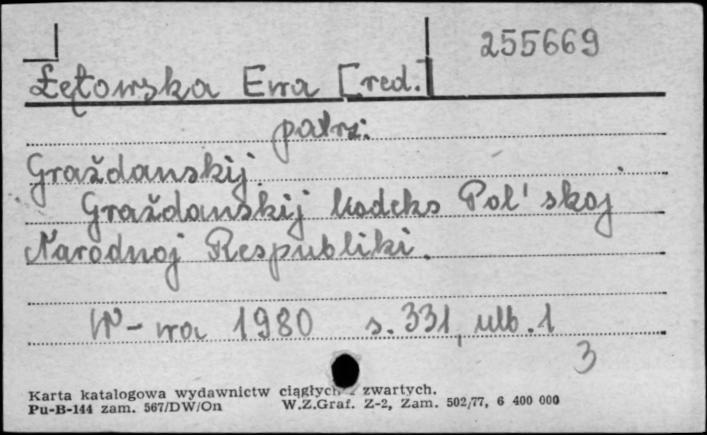 255669
Łętowska Ewa [red.]
patrz:
Graždanskij.
Graždanskij kodeks Pol'skoj
Narodnoj Respubliki.
W-wa 1980 s. 331, ulb. 1
3
Karta katalogowa wydawnictw ciągłych i zwartych.
Pu-B-144 zam. 567/DW/On W.Z.Graf. Z-2, Zam. 502/77, 6 400 000